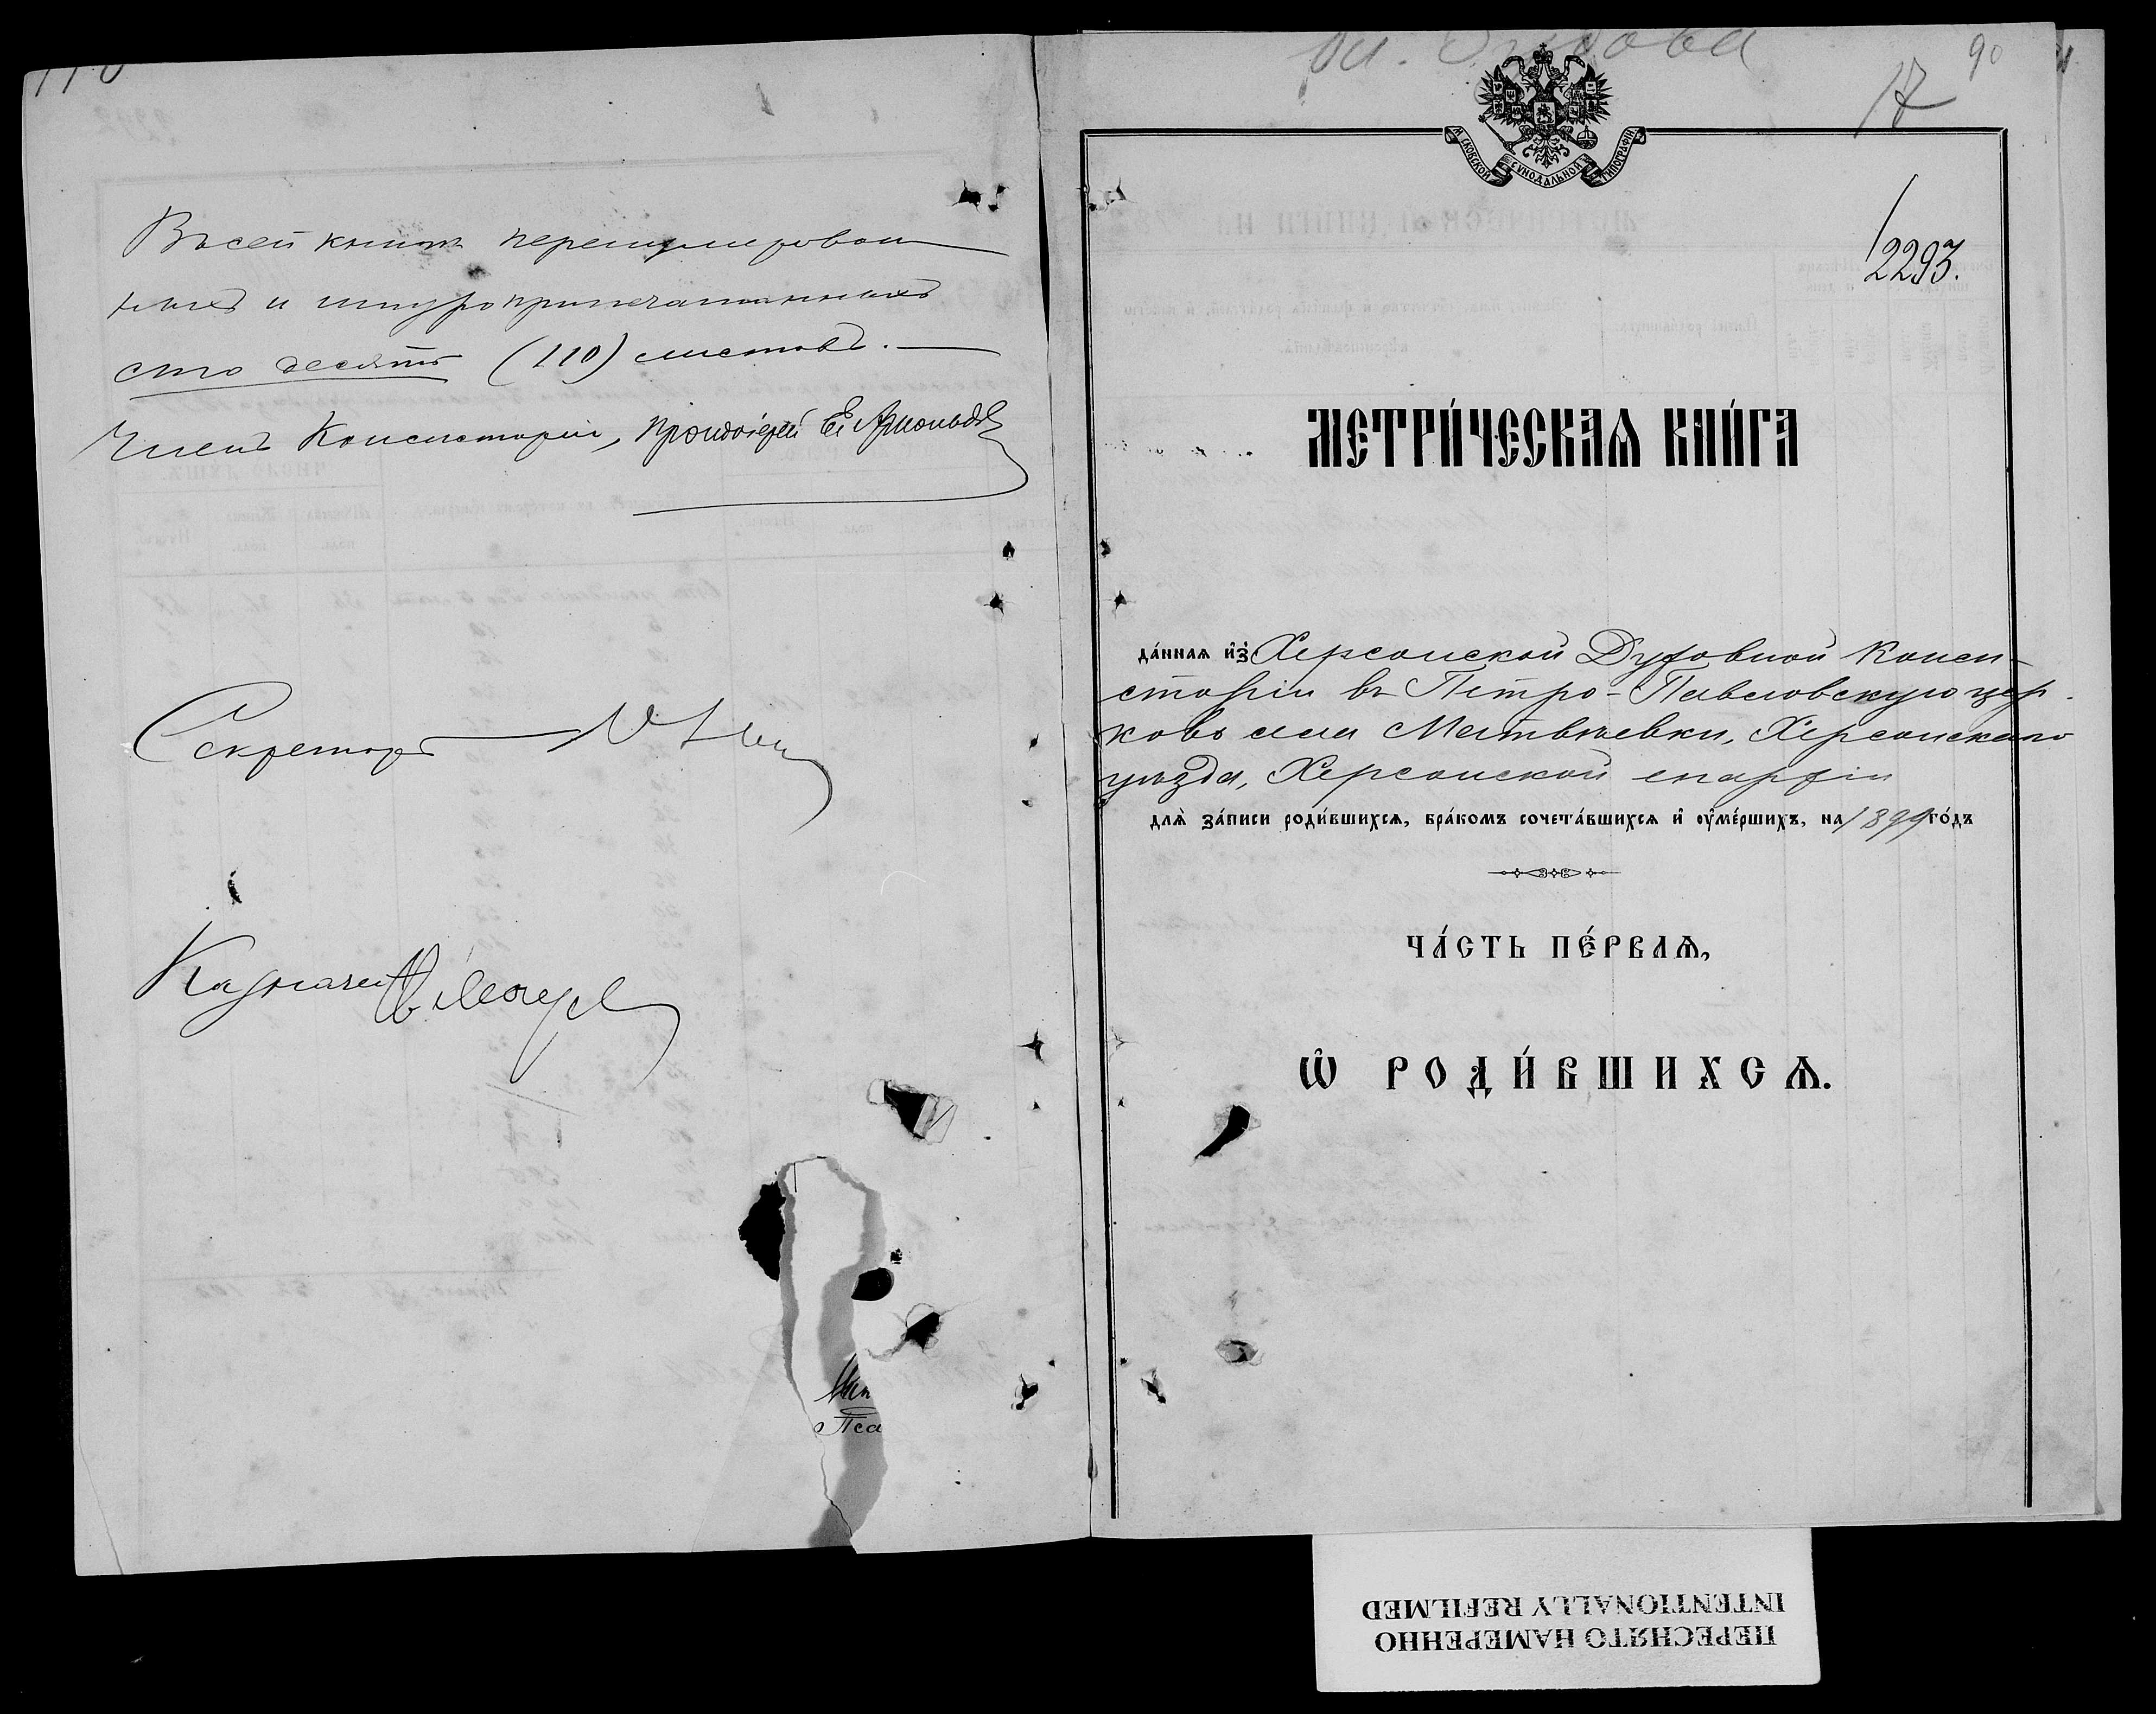 Въ сей книгѣ перенумерован
ныхъ и шнуроприпечатанныхъ
сто десять (110) листовъ.
Членъ Консисторіи, Протоіерей
Секретарь
Казначей
Пса
90
17
МОСКОВСКОЙ СУНОДАЛЬНОЙ ТИПОГРАФІИ
2293.
МЕТРИ́ЧЕСКАѦ КНИ́ГА
да́ннаѧ и҆з̾ Херсонской Духовной Конси-
сторіи въ Петро-Павловскую цер-
ковь села Матвѣевки, Херсонскаго
уѣзда, Херсонской епархіи
длѧ̀ за́писи роди́вшихсѧ, бра́комъ сочета́вшихсѧ и҆ оу҆ме́ршихъ, на 1899 го́дъ
ЧА́СТЬ ПЕ́РВАѦ,
Ѡ҆ РОДИ́ВШИХСѦ.
ПЕРЕСНЯТО НАМЕРЕННО
INTENTIONALLY REFILMED